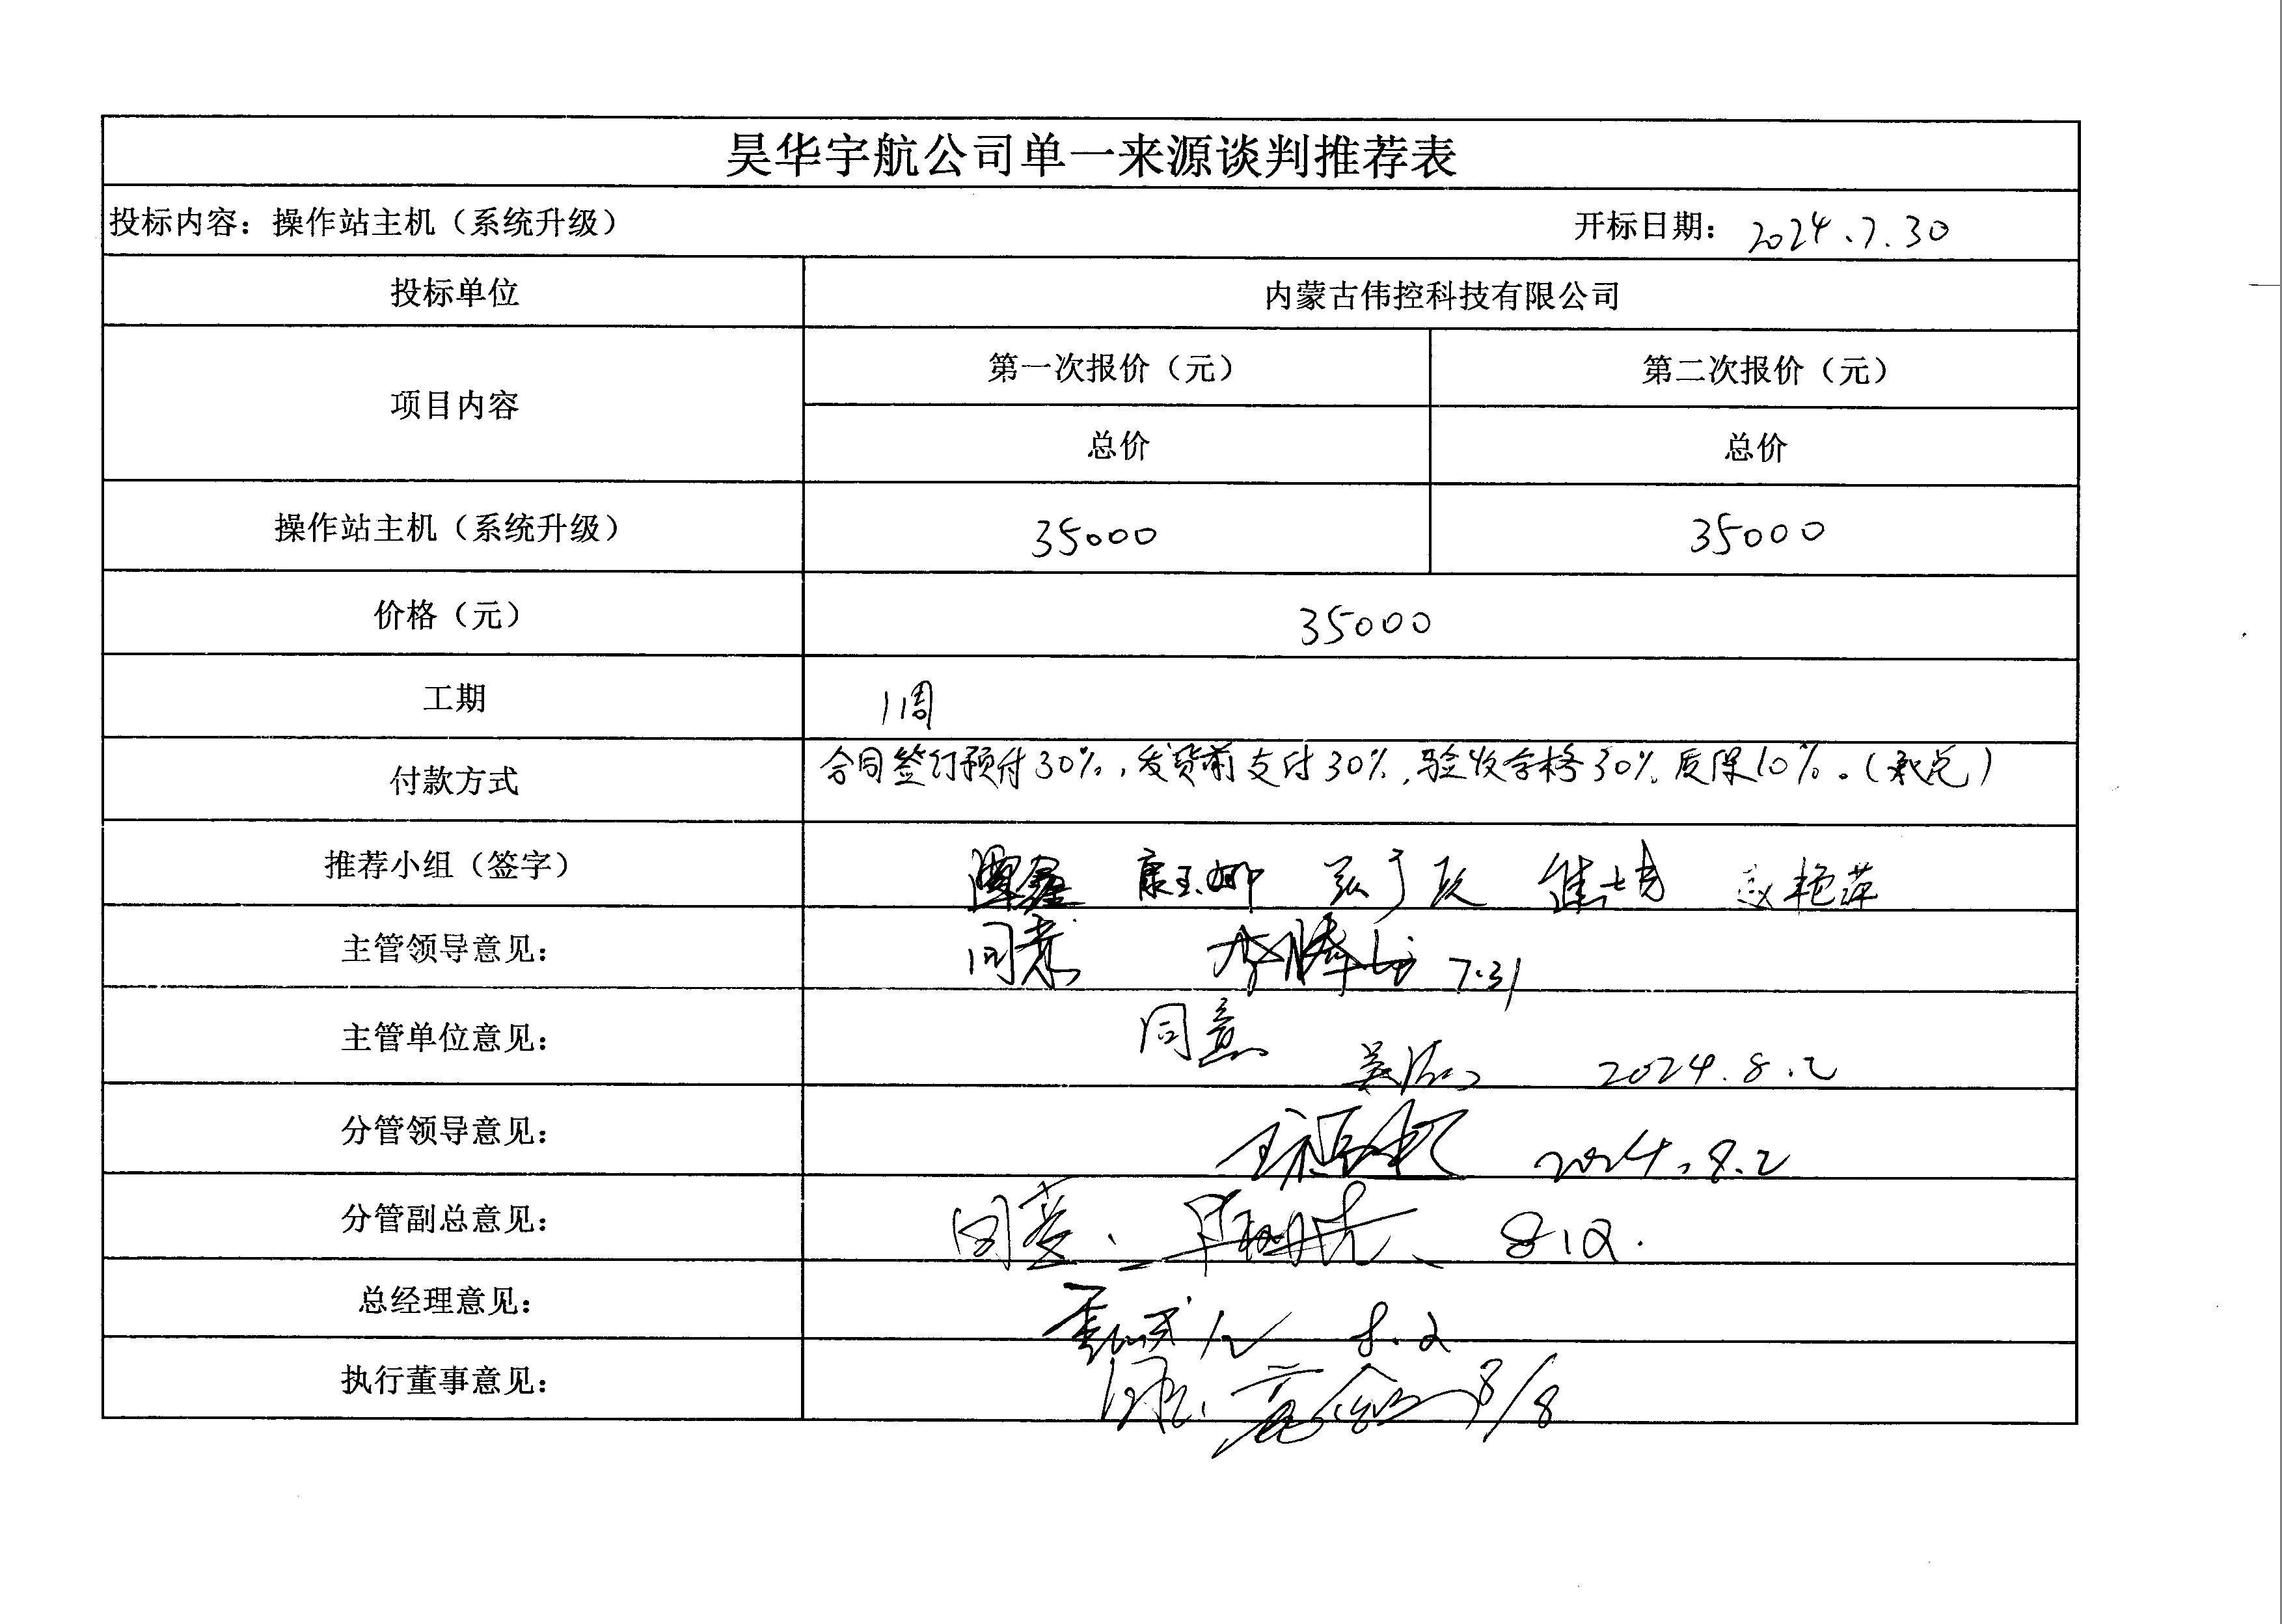 昊华宇航公司单一来源谈判推荐表
投标内容：操作站主机（系统升级） 开标日期： 2024.7.30
投标单位 内蒙古伟控科技有限公司
项目内容 第一次报价（元） 第二次报价（元）
总价 总价
操作站主机（系统升级） 35000 35000
价格（元） 35000
工期 1周
付款方式 合同签订预付30%，发货前支付30%，验收合格30%，质保10%。（承兑）
推荐小组（签字） 康玉娜 赵艳萍
主管领导意见： 同意 7.31
主管单位意见： 同意 2024.8.2
分管领导意见： 2024.8.2
分管副总意见： 同意
总经理意见： 8.2
执行董事意见： 8/8